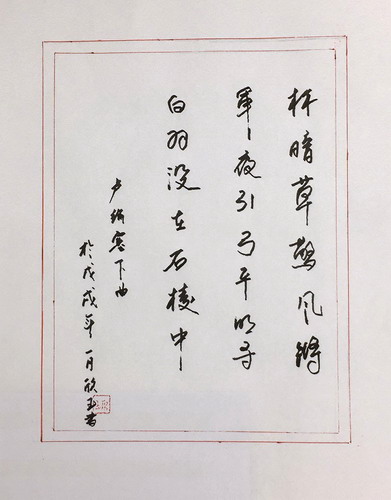 林暗草惊风将
军夜引弓平明寻
白羽没在石棱中
卢纶塞下曲
於戊戌年一月欣玉书